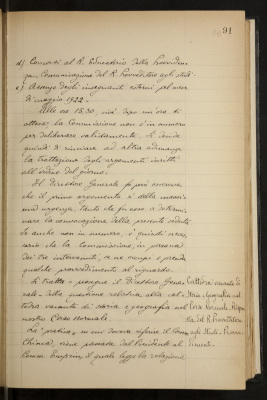 91
d) Concorsi al R. Educatorio della Provviden-
za. Comunicazione del R. Provveditore agli studi.
e) Assenze degli insegnanti esterni pel mese
di maggio 1922.
Alle ore 15.30, cioè dopo un'ora di
attesa, la Commissione non è in numero
per deliberare validamente. Si decide
quindi di rinviare ad altra adunanza
la trattazione degli argomenti iscritti
all'ordine del giorno.
Il Direttore Generale fa però osservare
che il primo argomento è della massi-
ma urgenza, tanto che fu esso a determi-
nare la convocazione della presente seduta.
Se anche non in numero, è quindi neces-
sario che la Commissione, in persona
dei tre intervenuti, se ne occupi e prenda
qualche provvedimento al riguardo.
Si tratta, espone il Direttore Gene-
rale, della questione relativa alla cat-
tedra vacante di storia e geografia nel
nostro Corso Normale.
La pratica, in cui doveva riferire il Comm.
Chiucca, viene passata dal Presidente al
Comm. , il quale legge la relazione
Cattedra vacante di
Storia e Geografia nel
Corso Normale. Rispos-
ta del R. Provveditore
agli Studi. Provve-
dimenti.